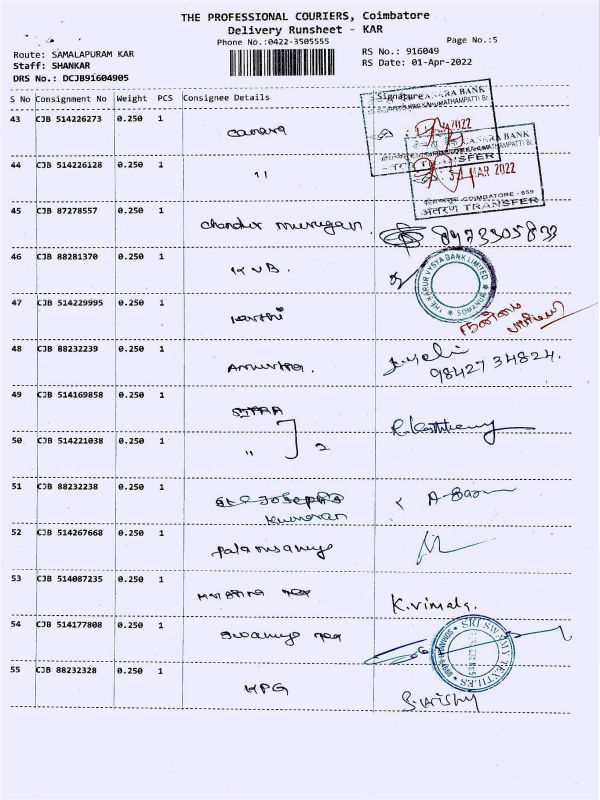 THE PROFESSIONAL COURIERS, Coimbatore
Delivery Runsheet - KAR
Phone No.:0422-3505555
Page No.:5
Route: SAMALAPURAM KAR
RS No.: 916049
Staff: SHANKAR
RS Date: 01-Apr-2022
DRS No.: DCJB91604905
S No Consignment No Weight PCS Consignee Details Signature
43 CJB 514226273 0.250 1 canara
CANARA BANK
44 CJB 514226128 0.250 1 "
CANARA BANK
MAR 2022
COIMBATORE - 659
अंतरण TRANSFER
45 CJB 87278557 0.250 1 chandir murugan 8973305833
46 CJB 88281370 0.250 1 KVB.
THE KARUR VYSYA BANK LIMITED
47 CJB 514229995 0.250 1 Karthi
48 CJB 88232239 0.250 1
98427 34824.
49 CJB 514169858 0.250 1 SITRA
50 CJB 514221038 0.250 1 " 2
51 CJB 88232238 0.250 1
Kumaran
52 CJB 514267668 0.250 1 palanisamy
53 CJB 514087235 0.250 1 K.vimala.
54 CJB 514177808 0.250 1 swamy tex
SRI SWAMY TEXTILES
55 CJB 88232328 0.250 1 KPG